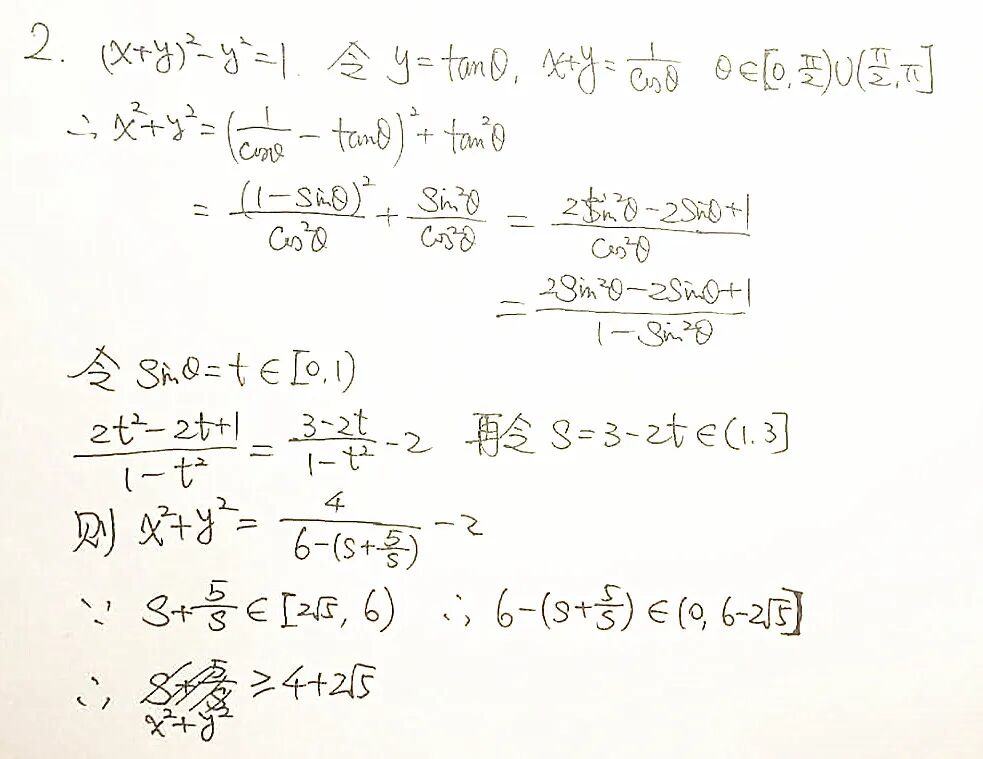 2. (x+y)²-y²=1. 令 y=tanθ, x+y=1/cosθ θ∈[0,π/2)∪(π/2,π]
∴ x²+y²=(1/cosθ - tanθ)²+tan²θ
= (1-sinθ)²/cos²θ + sin²θ/cos²θ = (2sin²θ-2sinθ+1)/cos²θ
= (2sin²θ-2sinθ+1)/(1-sin²θ)
令 sinθ=t∈[0,1)
(2t²-2t+1)/(1-t²) = (3-2t)/(1-t²) -2 再令 s=3-2t∈(1.3]
则 x²+y²= 4/(6-(s+5/s)) -2
∵ s+5/s∈[2√5, 6) ∴ 6-(s+5/s)∈(0, 6-2√5]
∴ x²+y² ≥4+2√5